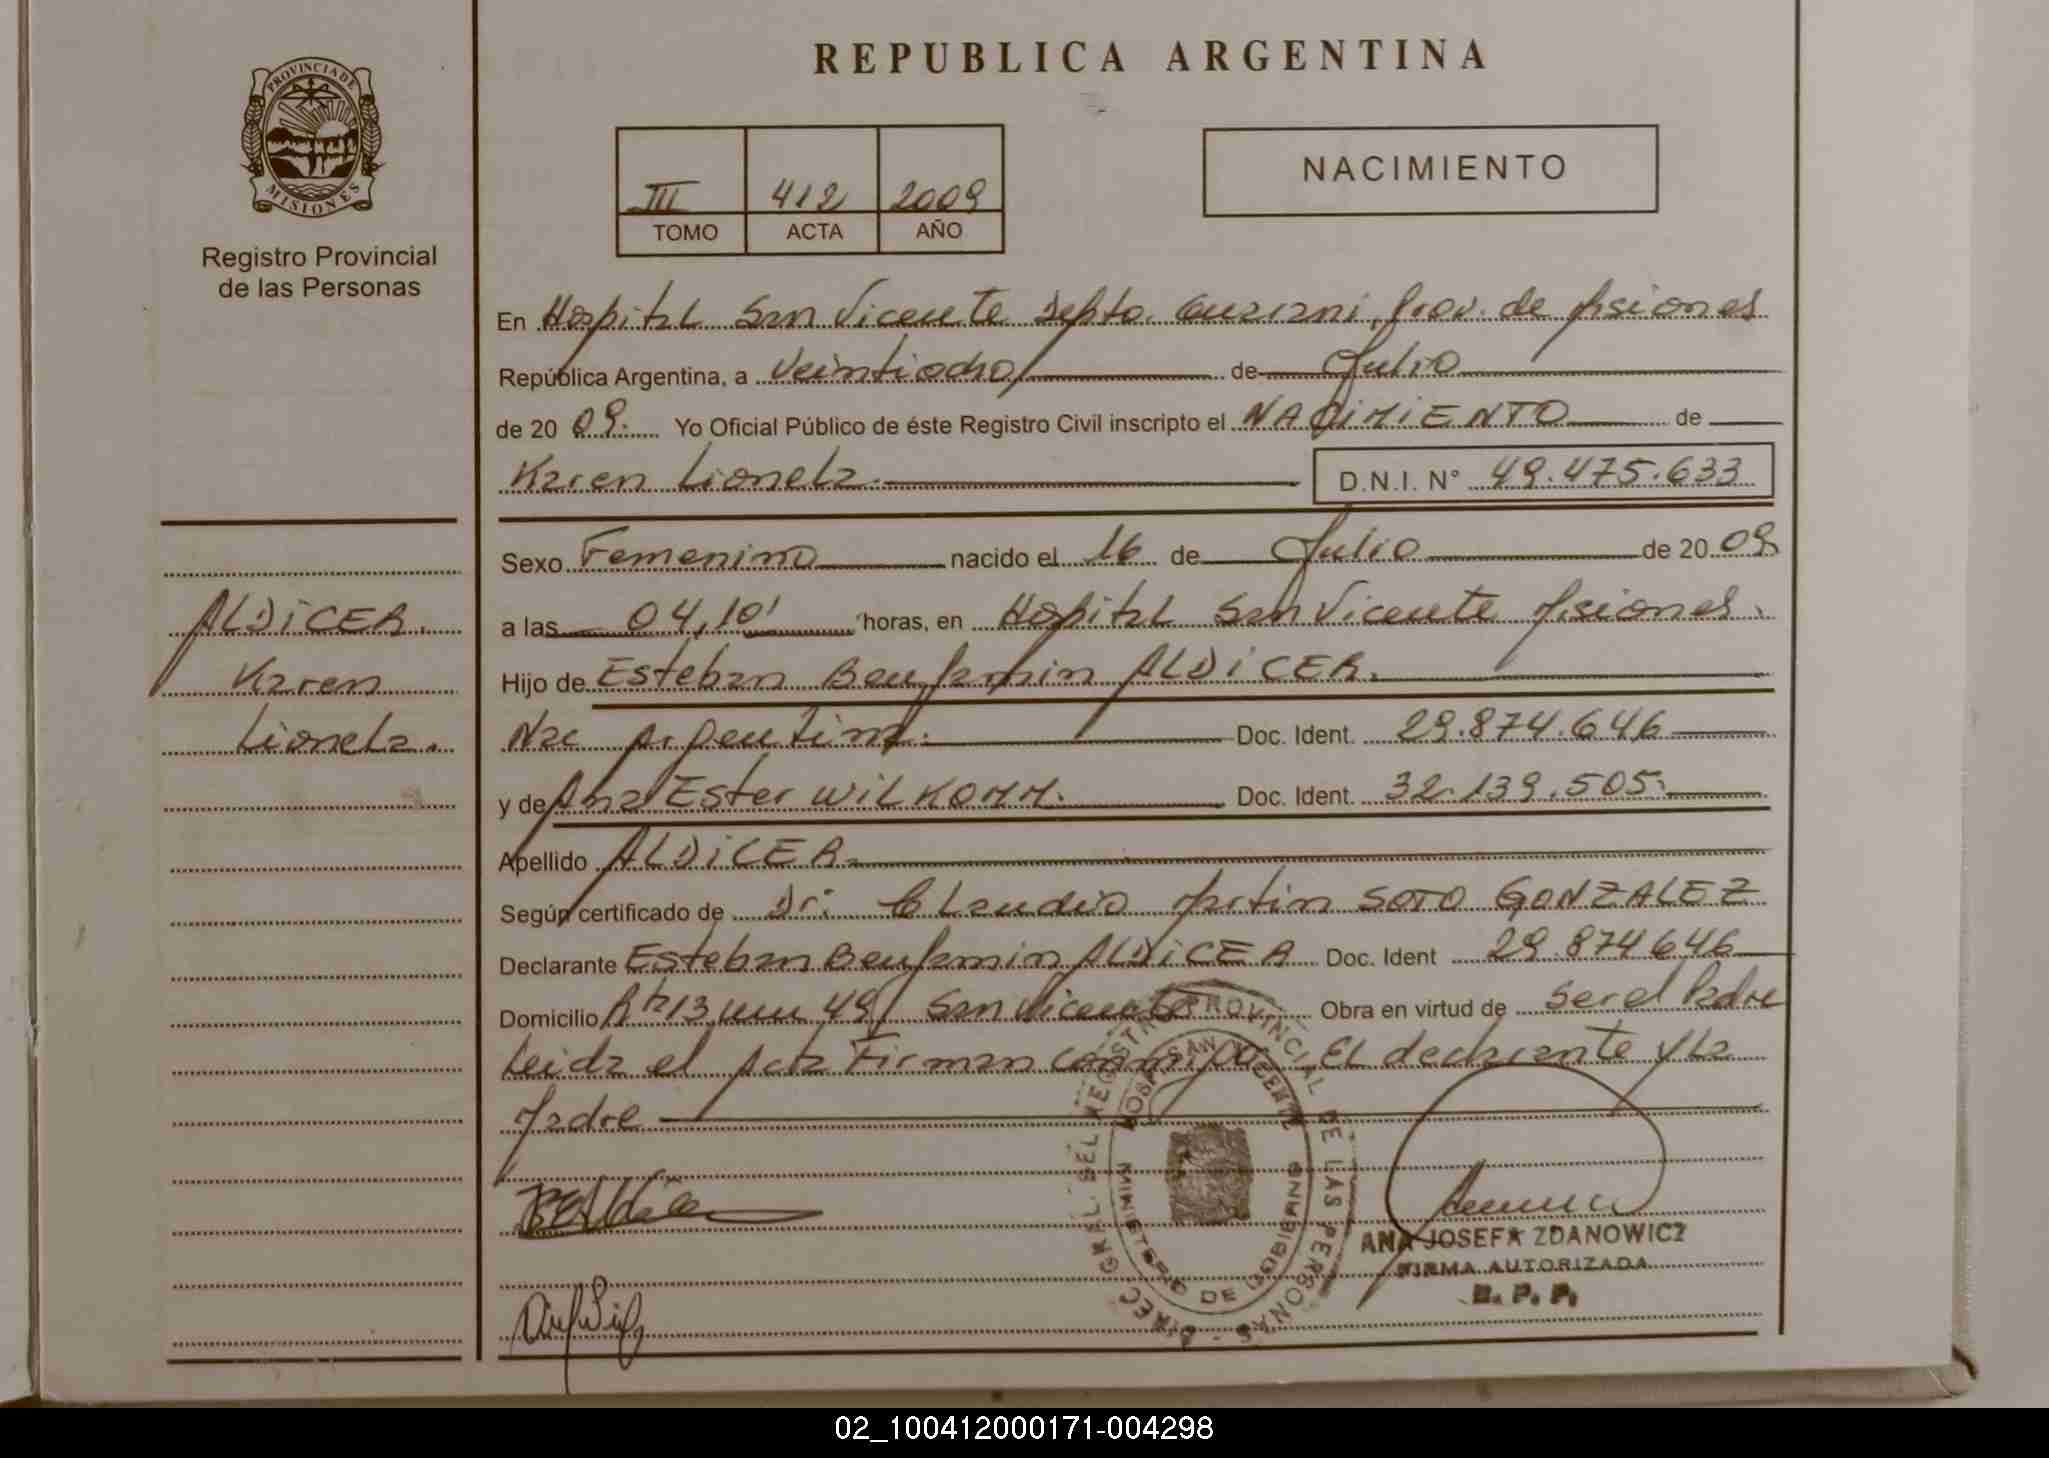 PROVINCIA DE
MISIONES
Registro Provincial
de las Personas
ALDICER.
Karen
Lionela.
REPUBLICA ARGENTINA
III 412 2009
TOMO ACTA AÑO
NACIMIENTO
En Hospital San Vicente Depto. Guarani, Prov. de Misiones
República Argentina, a Veintiocho de Julio
de 20 09. Yo Oficial Público de éste Registro Civil inscripto el NACIMIENTO de
Karen Lionela. D.N.I. N° 49.475.633
Sexo Femenino nacido el 16 de Julio de 20 09
a las 04,10' horas, en Hospital San Vicente Misiones.
Hijo de Esteban Benjamin ALDICER.
Nac Argentina. Doc. Ident. 29.874.646
y de Ana Ester WILKOMM. Doc. Ident. 32.139.505.
Apellido ALDICER.
Según certificado de Dr. Claudio Martin SOTO GONZALEZ
Declarante Esteban Benjamin ALDICER Doc. Ident 29.874646
Domicilio Rta 13, 49 San Vicente Obra en virtud de Ser el Padre
Leida el Acta Firman conmigo, EL declarante y La
Madre
DIREC GRAL. DEL REGISTRO PROVINCIAL DE LAS PERSONAS
HOSP. SAN VICENTE
MINISTERIO DE GOBIERNO
ANA JOSEFA ZDANOWICZ
FIRMA AUTORIZADA
R. P. P.
02_100412000171-004298